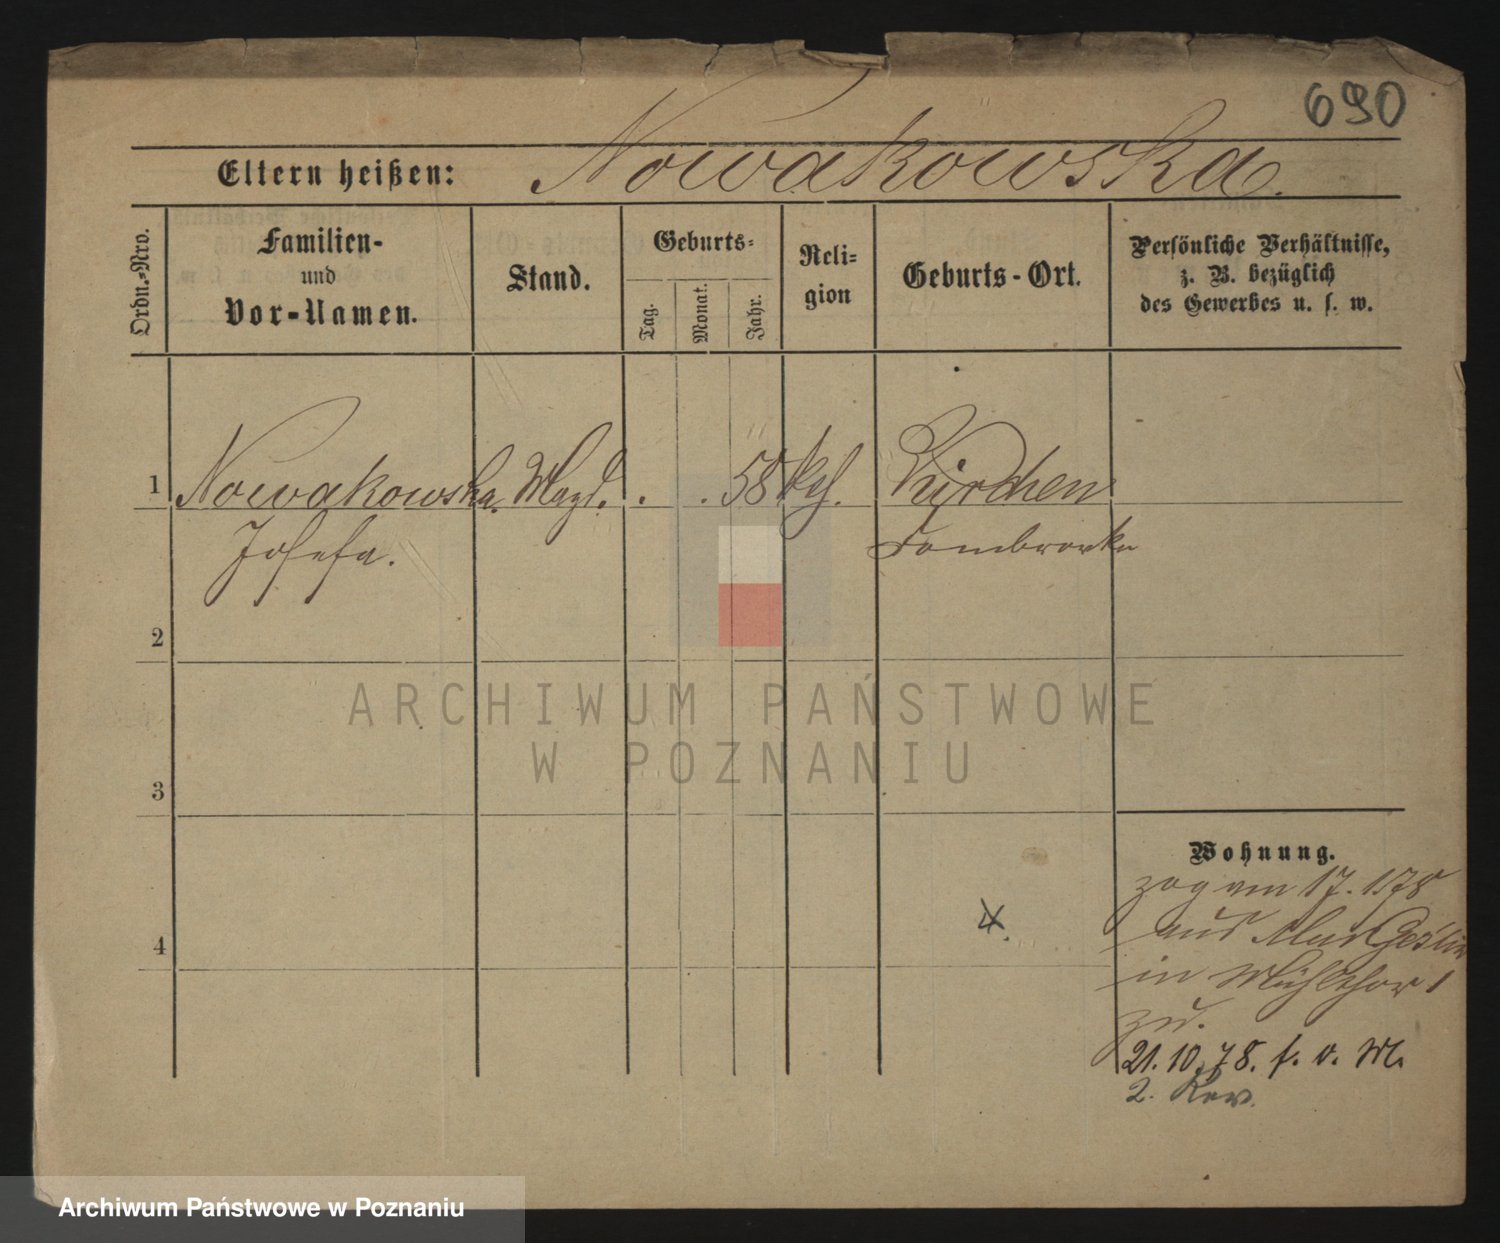 690
Eltern heißen: Nowakowska.
Ordn.-Nro.
Familien-
und
Vor-Namen.
Stand.
Geburts-
Tag.
Monat.
Jahr.
Reli-
gion
Geburts-Ort.
Persönliche Verhältnisse,
z. B. bezüglich
des Gewerbes u. s. w.
1 Nowakowska Magd. . . 58 kth.
Josefa.
2
3
4
ARCHIWUM PAŃSTWOWE
W POZNANIU
Wohnung.
zog am 17.
aus
in Mühlthor 1
zu.
21.10.78. f. v. M.
2. Rev.
Archiwum Państwowe w Poznaniu